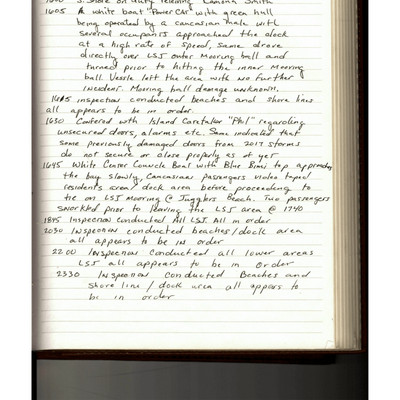 1600 S. Shore on duty relieving Smith
1605 A white boat "Power Cat" with green hull
being operated by a caucasian male with
several occupants approached the dock
at a high rate of speed, same drove
directly over LSJ outer Mooring ball and
turned prior to hitting the inner mooring
ball. Vessle left the area with no further
incident. Mooring ball damage unknown.
1615 inspection conducted beaches and shore line
all appears to be in order.
1630 Confered with Island Caretaker "Phil" regarding
unsecured doors, alarms etc. Same indicated that
some previously damaged doors from 2017 storms
do not secure or close properly as of yet
1645 White Center Consule Boat with Blue Bimi top approached
the bay slowly, Caucasian passengers video taped
residents area/dock area before proceeding to
tie on LSJ mooring @ Jugglers Beach. Two passengers
snorkled prior to leaving the LSJ area @ 1740
1845 Inspection conducted All LSJ. All in order
2030 Inspection conducted beaches/dock area
all appears to be in order
2200 Inspection conducted all lower areas
LSJ all appears to be in order
2330 Inspection conducted Beaches and
shore line/dock area all appears to
be in order